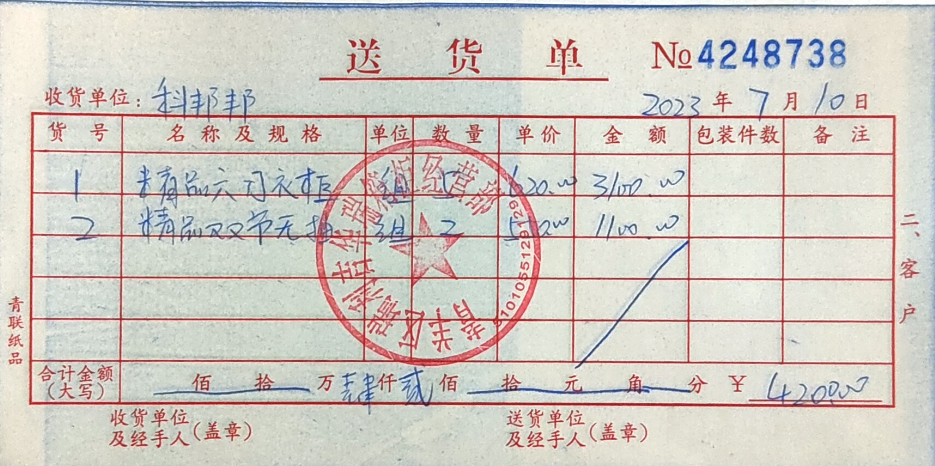 送 货 单 №4248738
收货单位: 科邦邦 2023 年 7 月 10 日
货 号 名 称 及 规 格 单位 数 量 单 价 金 额 包装件数 备 注
1 精品六门衣柜 组 5 620.00 3100.00
2 精品双节无抽 组 2 550.00 1100.00
合计金额(大写) 佰 拾 万 肆 仟 贰 佰 拾 元 角 分 ¥ 4200.00
收货单位及经手人(盖章) 送货单位及经手人(盖章)
二、客户
青联纸品
青羊区瑞利吉祥
柜经营部
5101055129129